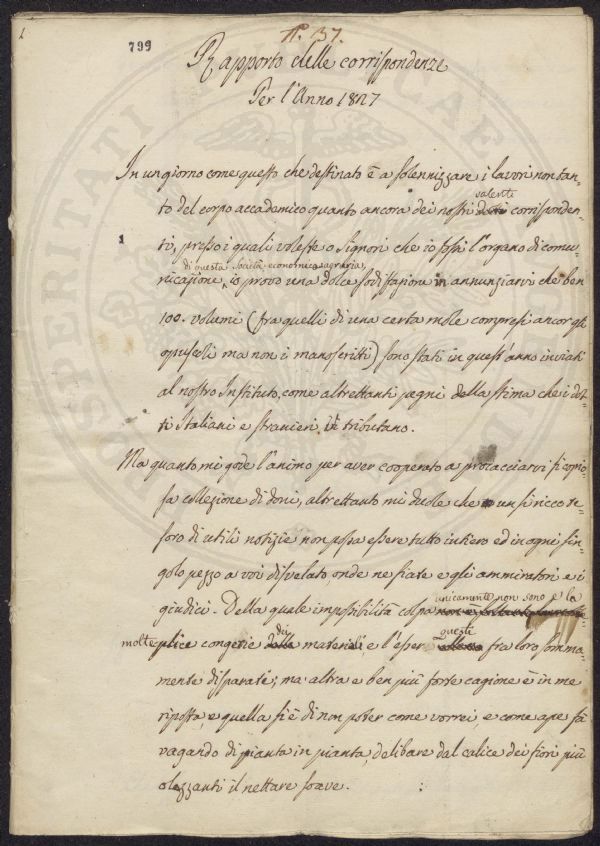 1
N.° 37.
799
Rapporto delle corrispondenze
Per l'Anno 1827
In un giorno come questo che destinato è a solennizzare i lavori non tan-
valenti
to del corpo accademico quanto ancora dei nostri dotti corrisponden-
1
ti, presso i quali voleste o Signori che io fossi l'organo di comu-
di questa Società economico agraria
nicazione, io provo una dolce sodisfazione in annunziarvi che ben
100. volumi (fra quelli di una certa mole compresi ancor gli
opuscoli ma non i manoscritti) sono stati in quest'anno inviati
al nostro Instituto, come altrettanti pegni della stima che i dot-
ti Italiani e stranieri vi tributano.
Ma quanto mi gode l'animo per aver cooperato a procacciarvi sì copio-
sa collezione di doni, altrettanto mi duole che un sì ricco te-
soro di utili notizie non possa essere tutto intiero ed in ogni sin-
golo pezzo a voi disvelato, onde ne siate e gli ammiratori e i
unicamente non sono e la
giudici. Della quale impossibilità colpa non è soltanto
dei queste
molteplice congerie delle materie e l'esser fra loro somma-
mente disparate; ma altra e ben più forte cagione è in me
riposta, e quella si è di non poter come vorrei e come ape sì
vagando di pianta in pianta, delibare dal calice dei fiori più
olezzanti il nettare soave.